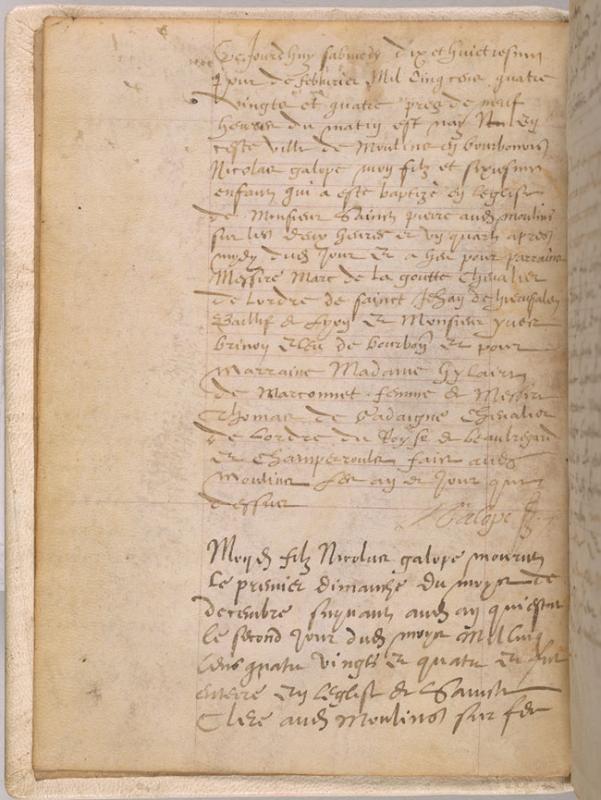 Ce Jourdhuy sabmedy dix et huictiesme
Jour de febvrier Mil cinq cens quatre
vingts et quatre pres de neuf
heures du matin est nay En
ceste ville de Moulins en bourbonois
Nicolas galope mon filz et sixiesme
enfant qui a este baptizé en leglise
de Monsieur Sainct pierre aud moulins
sur les deux heures et ung quart apres
mydy dud Jour Et a heu pour parrains
Messire Marc de la goutte Chevalier
de Lordre de sainct Jehan de hierusalem
Baillif de Lyon Et Monsieur yves
brinon esleu de bourbon Et pour
marraine Madame hylaire
de Marconnet femme de Messire
Thomas de Gadaigne Chevalier
de Lordre du Roy Sr de beauregard
Et Champerroulx faict aud
Moulins Les an et Jour que
dessus
Galope
Mond filz Nicolas galope mourut
Le premier dimanche du moys de
decembre suyvant aud an qui estoit
le second Jour dud moys Mil cinq
cens quatre vingts et quatre Et fut
enterré en Leglise de Saincte
Clere aud Moulins sur les